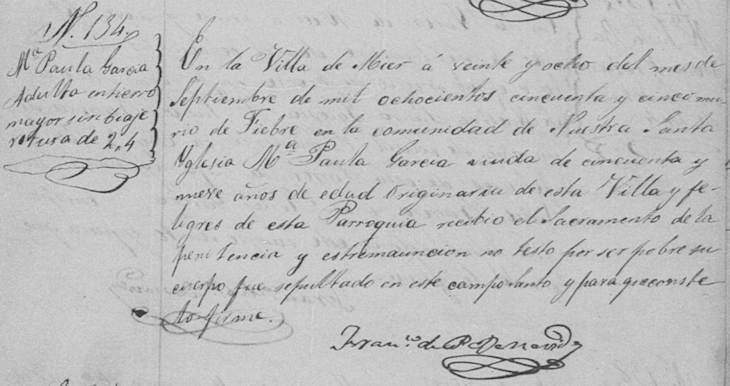 N. 134
Mª Paula Garcia
Adulta entierro
mayor sin biaje
rotura de 2,,4
En la Villa de Mier á veinte y ocho del mes de
Septiembre de mil ochocientos cincuenta y cinco mu-
rio de Fiebre en la comunidad de Nuestra Santa
Yglesia Mª Paula Garcia viuda de cincuenta y
nueve años de edad originaria de esta Villa y fe-
ligres de esta Parroquia recibio el Sacramento de la
penitencia y estremauncion no testo por ser pobre su
cuerpo fue sepultado en este campo santo y para q.e conste
lo firme.
Fran.co de P.